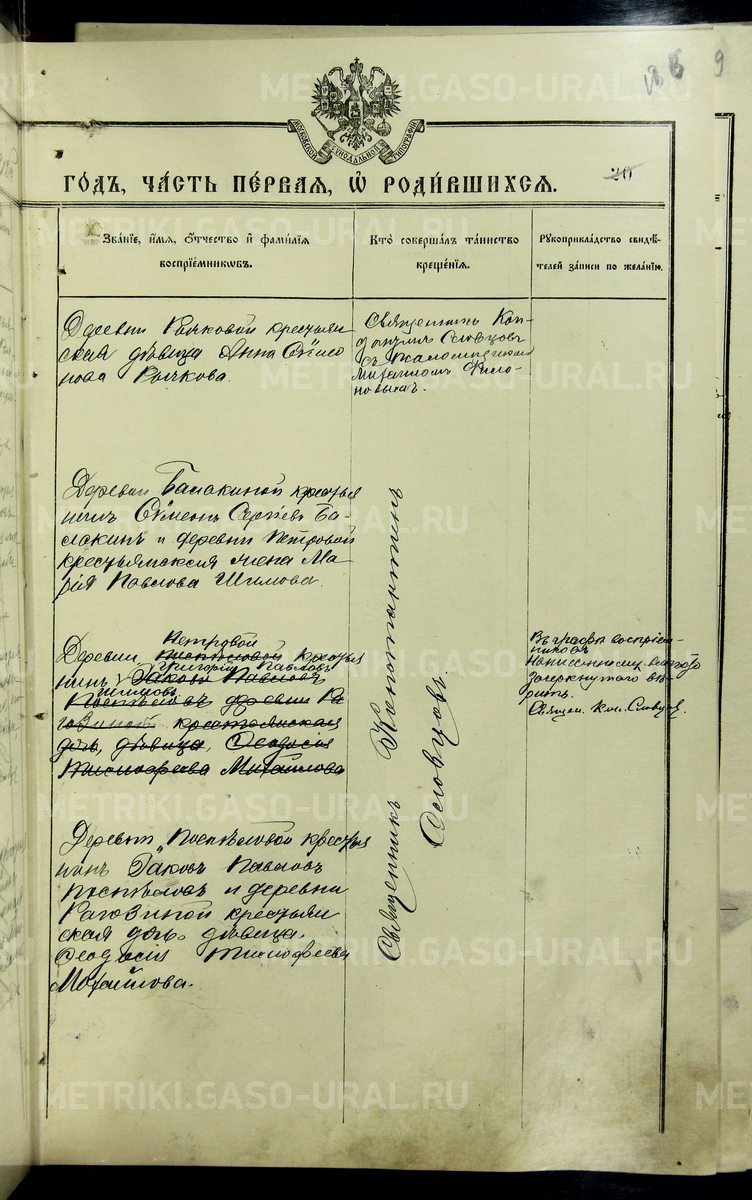 9
МОСКОВСКОЙ СѴНОДАЛЬНОЙ ТИПОГРАФІИ
ГО́ДЪ, ЧА́СТЬ ПЕ́РВАЯ, Ѽ РОДИ́ВШИХСЯ.
20
Зва́нїе, и́мя, ѻ́тчество и҆ фами́лїя
воспрїе́мникѡвъ.
Кто̀ соверша́лъ та́инство
креще́нїя.
Рукоприкла́дство свидѣ́-
телей за́писи по жела́нїю.
Деревни Рычковой крестьян
ская дѣвица Анна Симо
нова Рычкова.
Священникъ Кон
стантинъ Словцовъ
съ псаломщикомъ
Михаиломъ
Деревни Балакиной крестья
нинъ Симеонъ Сергіевъ Ба-
лакинъ и деревни Петровой
крестьянская жена Ма
рія Павлова Шимова.
Священникъ Константинъ
Словцовъ
Петровой
Деревни Поспѣловой крестья
Григорій Павловъ
нинъ Іаковъ Павловъ
Шимовъ
Поспѣловъ деревни Ра
гозиной крестьянская
дочь, дѣвица, Ѳеодосія
Тимофеева Михайлова
Въ графѣ воспріем-
никовъ
написанному вмѣсто
зачеркнутаго вѣ-
рить.
Священ. Кон. Словцов.
Деревни Поспѣловой крестья
нинъ Іаковъ Павловъ
Поспѣловъ и деревни
Рагозиной крестьян
ская дочь дѣвица
Ѳеодосія Тимофеева
Михайлова.
METRIKI.GASO-URAL.RU